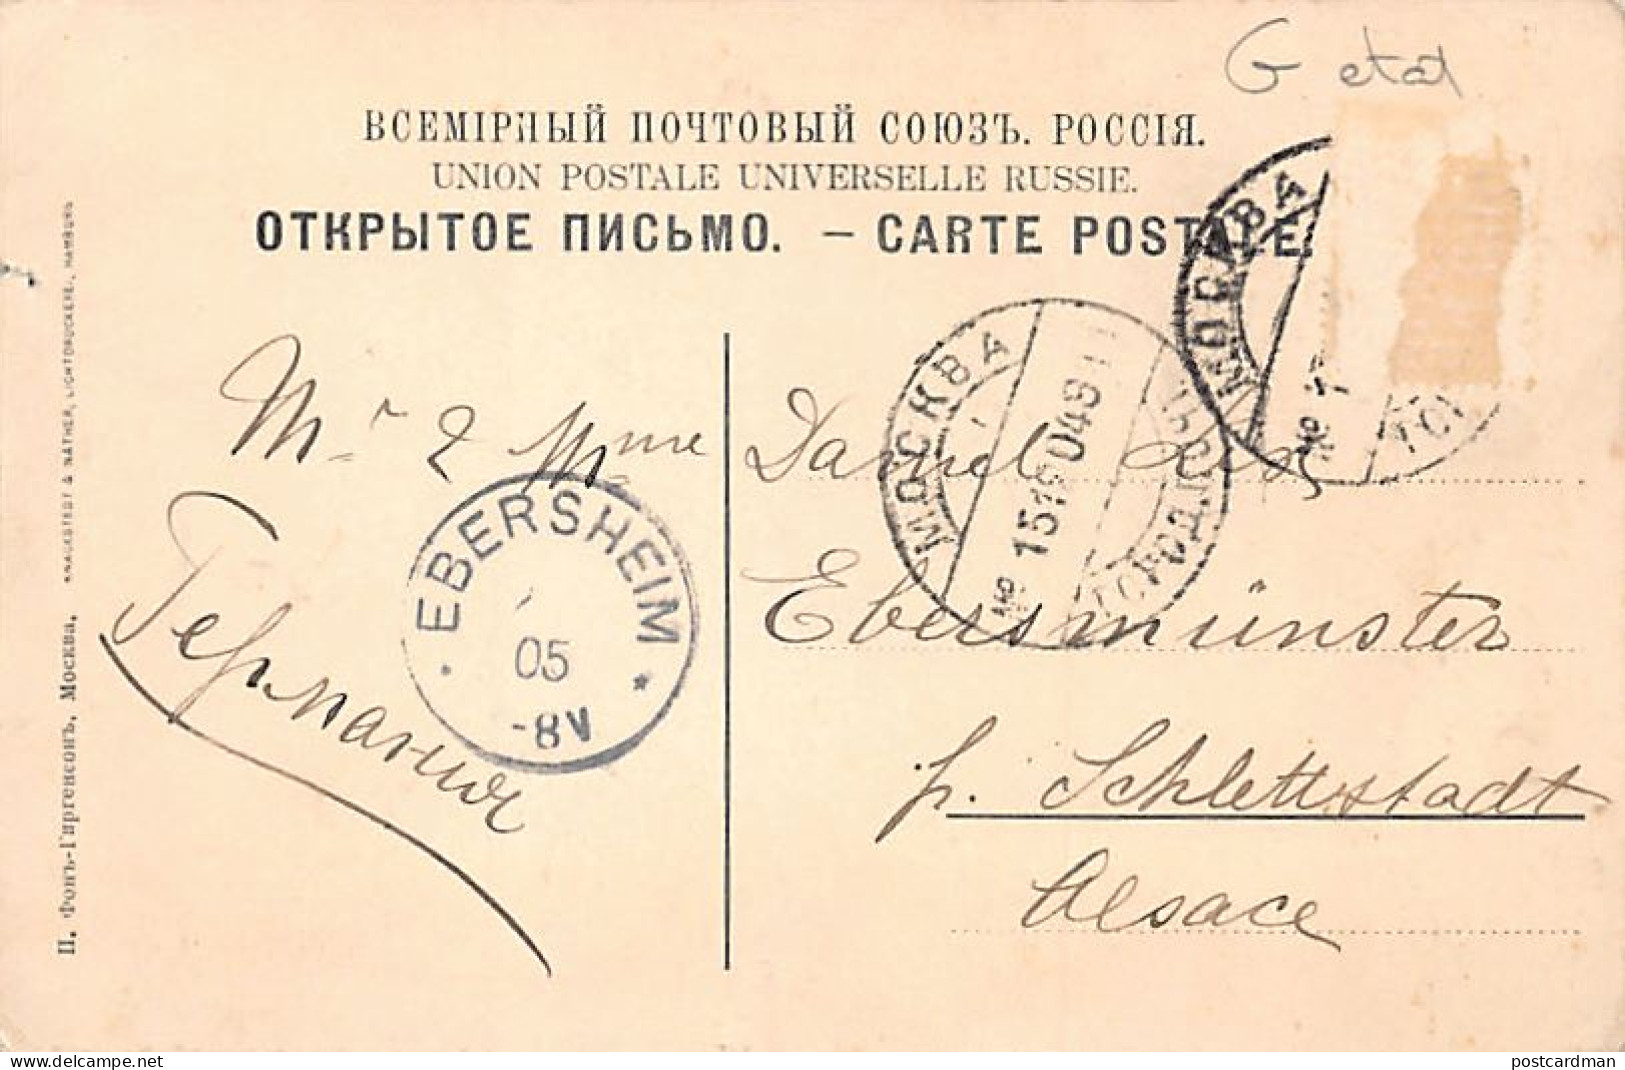 G etat
ВСЕМІРНЫЙ ПОЧТОВЫЙ СОЮЗЪ. РОССІЯ.
UNION POSTALE UNIVERSELLE RUSSIE.
ОТКРЫТОЕ ПИСЬМО. – CARTE POSTALE
МОСКВА
МОСКВА
№ 15 04 8
ГОРОД.
№ 7
Mr & Mme Daniel
Ebersmünster
p. Schlettstadt
Alsace
Германия
EBERSHEIM
05
-8V
П. Фонъ-Гиргенсонъ, Москва. KNACKSTEDT & NÄTHER, LICHTDRUCKEREI, HAMBURG
www.delcampe.net
postcardman